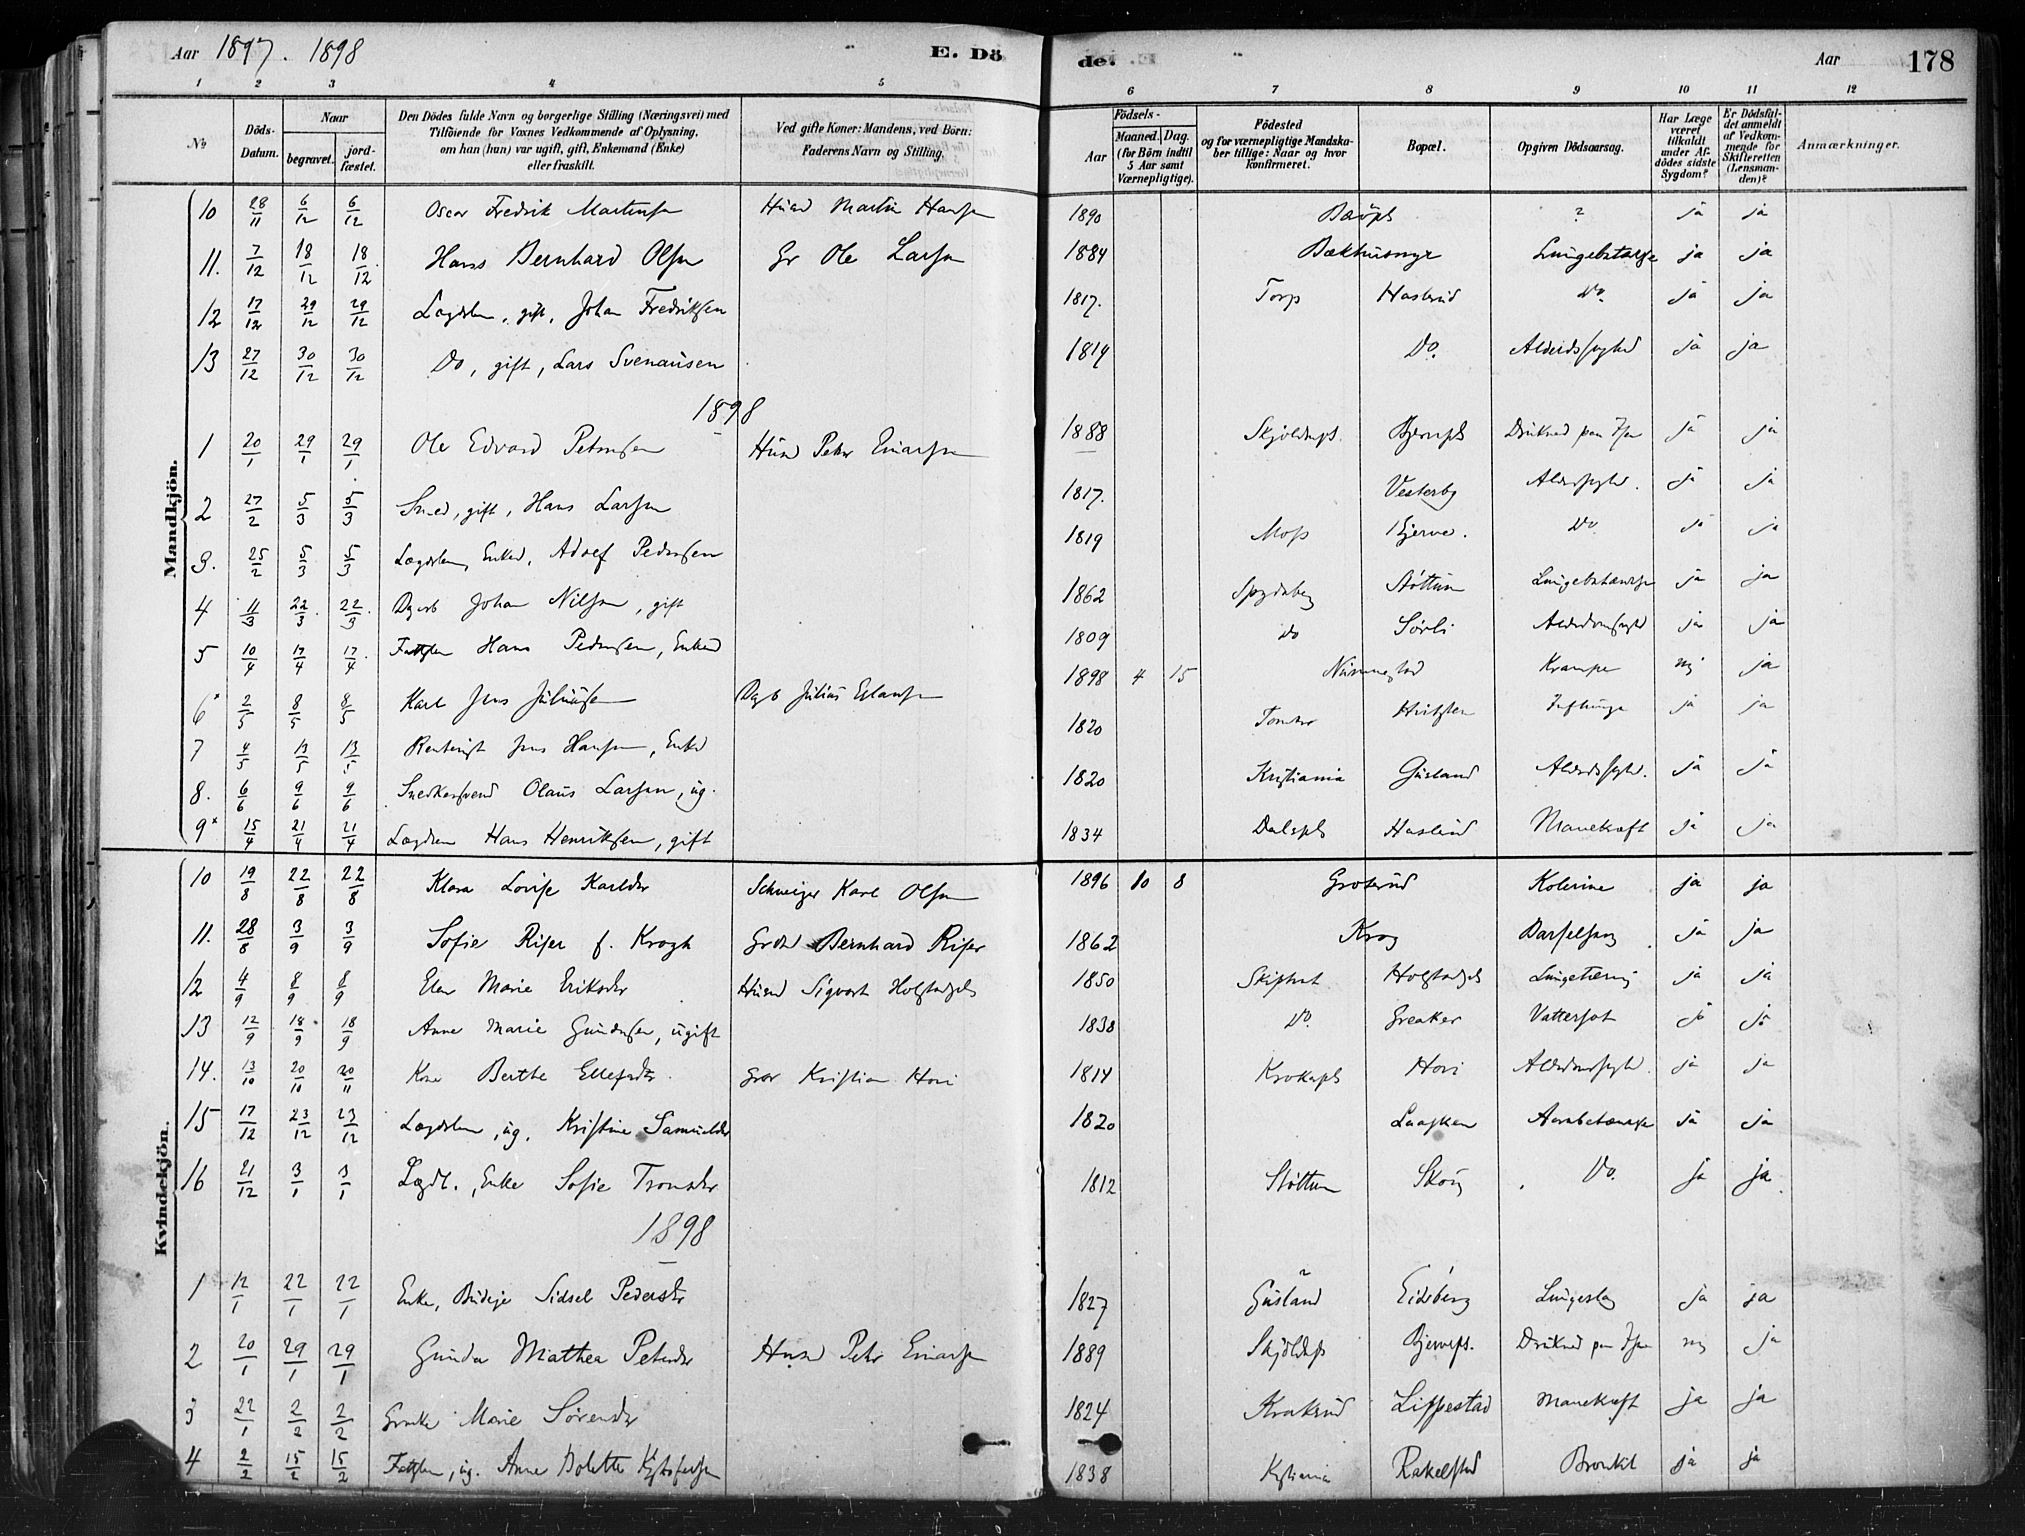 Aar 1897. 1898 E. Dö de. Aar 178
1 2 3 4 5 6 7 8 9 10 11 12
No Döds-Datum. Naar begravet. jordfæstet. Den Dödes fulde Navn og borgerlige Stilling (Næringsvei) med Tilföiende for Voxnes Vedkommende af Oplysning, om han (hun) var ugift, gift, Enkemand (Enke) eller fraskilt. Ved gifte Koner: Mandens, ved Börn: Faderens Navn og Stilling. Födsels- Aar Maaned. Dag. (for Börn indtil 5 Aar samt Værnepligtige). Födested og for værnepligtige Mandskaber tillige: Naar og hvor konfirmeret. Bopæl. Opgiven Dödsaarsag. Har Læge været tilkaldt under Afdödes sidste Sygdom? Er Dödsfaldet anmeldt af Vedkommende for Skifteretten (Lensmanden)? Anmærkninger.
Mandkjön.
10 28/11 6/12 6/12 Oscar Fredrik Martinsen Husd Martin Hansen 1890 ? ja ja
11. 7/12 18/12 18/12 Hans Bernhard Olsen Gr Ole Larsen 1884 Bækhusmyr Lungebetændelse ja ja
12 17/12 29/12 29/12 Lægdslem, gift, Johan Fredriksen 1817. Torp Haslerud Do. ja ja
13 27/12 30/12 30/12 Do, gift, Lars Svenausen 1814 Do. ja ja
1898
1 20/1 29/1 29/1 Ole Edvard Petersen Husd Peter Einarsen 1888 Skjoldepl. Bjernepl Druknet paa Isen ja ja
2 27/2 5/3 5/3 Smed, gift, Hans Larsen 1817. Vesterby ja ja
3. 25/2 5/3 5/3 Lægdslem, Enkem, Adolf Pedersen 1819 Moss Bjerve. Do ja ja
4 11/3 22/3 22/3 Johan Nilsen, gift 1862 Spydeberg Støttum Lungebetændelse ja ja
5 10/4 17/4 17/4 Fattiglem Hans Pedersen, Enkem 1809 Do Sørli ja ja
6 2/5 8/5 8/5 Karl Jens Juliussen Julius Erlansen 1898 4 15 Nummestad Krampe nej ja
7 4/5 13/5 13/5 Jens Hansen, Enkem 1820 Tomter Hvitsten Influensa ja ja
8. 6/6 9/6 9/6 Snedkersvend Olaus Larsen, ug. 1820 Kristiania Gusland ja ja
9 15/4 21/4 21/4 Lægdslem Hans Henriksen, gift 1834 Dalspl Haslerud Mavekræft ja ja
Kvindekjön.
10 19/8 22/8 22/8 Klara Lovise Karlsdtr Schweizer Karl Olsen 1896 10 8 Groterud Kolerine ja ja
11. 28/8 3/9 3/9 Sofie Riser f. Krogh Grdr Bernhard Riser 1862 Krog Barselseng ja ja
12 4/9 8/9 8/9 Elen Marie Eriksdtr Husmd Sigvart Holstadpl 1850 Skiptvet Holstadpl Lungetæring ja ja
13 12/9 18/9 18/9 Anne Marie Gundersen, ugift 1838 Do. Greaker Vattersot ja ja
14. 13/10 20/10 20/11 Kone Berthe Ellefsdtr. Grdr Kristian Hovi 1814 Krokepl Hovi ja ja
15 17/12 23/12 23/12 Lægdslem, ug. Kristine Samuelsdtr 1820 ja ja
16 21/12 3/1 3/1 Lægdl., Enke Sofie Tronsdtr 1812 Støttum Skou Do. ja ja
1898
1 12/1 22/1 22/1 Enke, Budeje Sidsel Pedersdtr 1827 Gusland Eidsberg ja ja
2 20/1 29/1 29/1 Gunda Mathea Petersdtr Husd Petr Einarsen 1889 Skjoldepl Bjernepl. Druknet paa Isen nej ja
3 22/1 2/2 2/2 Marie Sørensdtr 1824 Krakrud Lippestad Mavekræft ja ja
4 2/2 15/2 15/2 Fattiglem, ug. Anne Bolette Kristofersen 1838 Kristiania Rakelstad Bronkit ja ja